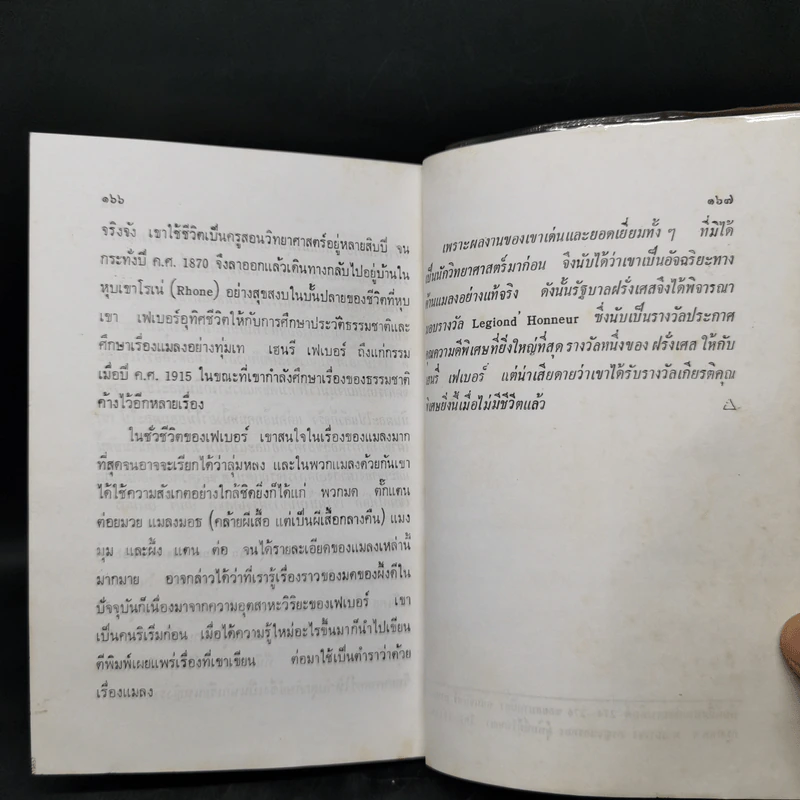 ๑๖๖
จริงจัง เขาใช้ชีวิตเป็นครูสอนวิทยาศาสตร์อยู่หลายสิบปี จน
กระทั่งปี ค.ศ. 1870 จึงลาออกแล้วเดินทางกลับไปอยู่บ้านใน
หุบเขาโรเน่ (Rhone) อย่างสุขสงบในบั้นปลายของชีวิตที่หุบ
เขา เฟเบอร์อุทิศชีวิตให้กับการศึกษาประวัติธรรมชาติและ
ศึกษาเรื่องแมลงอย่างทุ่มเท เฮนรี เฟเบอร์ ถึงแก่กรรม
เมื่อปี ค.ศ. 1915 ในขณะที่เขากำลังศึกษาเรื่องของธรรมชาติ
ค้างไว้อีกหลายเรื่อง
ในชั่วชีวิตของเฟเบอร์ เขาสนใจในเรื่องของแมลงมาก
ที่สุดจนอาจจะเรียกได้ว่าลุ่มหลง และในพวกแมลงด้วยกันเขา
ได้ใช้ความสังเกตอย่างใกล้ชิดยิ่งก็ได้แก่ พวกมด ตั๊กแตน
ต่อยมวย แมลงมอธ (คล้ายผีเสื้อ แต่เป็นผีเสื้อกลางคืน) แมง
มุม และผึ้ง แตน ต่อ จนได้รายละเอียดของแมลงเหล่านี้
มากมาย อาจกล่าวได้ว่าที่เรารู้เรื่องราวของมดของผึ้งดีใน
ปัจจุบันก็เนื่องมาจากความอุตสาหะวิริยะของเฟเบอร์ เขา
เป็นคนริเริ่มก่อน เมื่อได้ความรู้ใหม่อะไรขึ้นมาก็นำไปเขียน
ตีพิมพ์เผยแพร่เรื่องที่เขาเขียน ต่อมาใช้เป็นตำราว่าด้วย
เรื่องแมลง
๑๖๗
เพราะผลงานของเขาเด่นและยอดเยี่ยมทั้ง ๆ ที่มิได้
เป็นนักวิทยาศาสตร์มาก่อน จึงนับได้ว่าเขาเป็นอัจฉริยะทาง
ด้านแมลงอย่างแท้จริง ดังนั้นรัฐบาลฝรั่งเศสจึงได้พิจารณา
มอบรางวัล Legiond' Honneur ซึ่งนับเป็นรางวัลประกาศ
คุณความดีพิเศษที่ยิ่งใหญ่ที่สุด รางวัลหนึ่งของ ฝรั่งเศส ให้กับ
เฮนรี่ เฟเบอร์ แต่น่าเสียดายว่าเขาได้รับรางวัลเกียรติคุณ
พิเศษยิ่งนี้เมื่อไม่มีชีวิตแล้ว